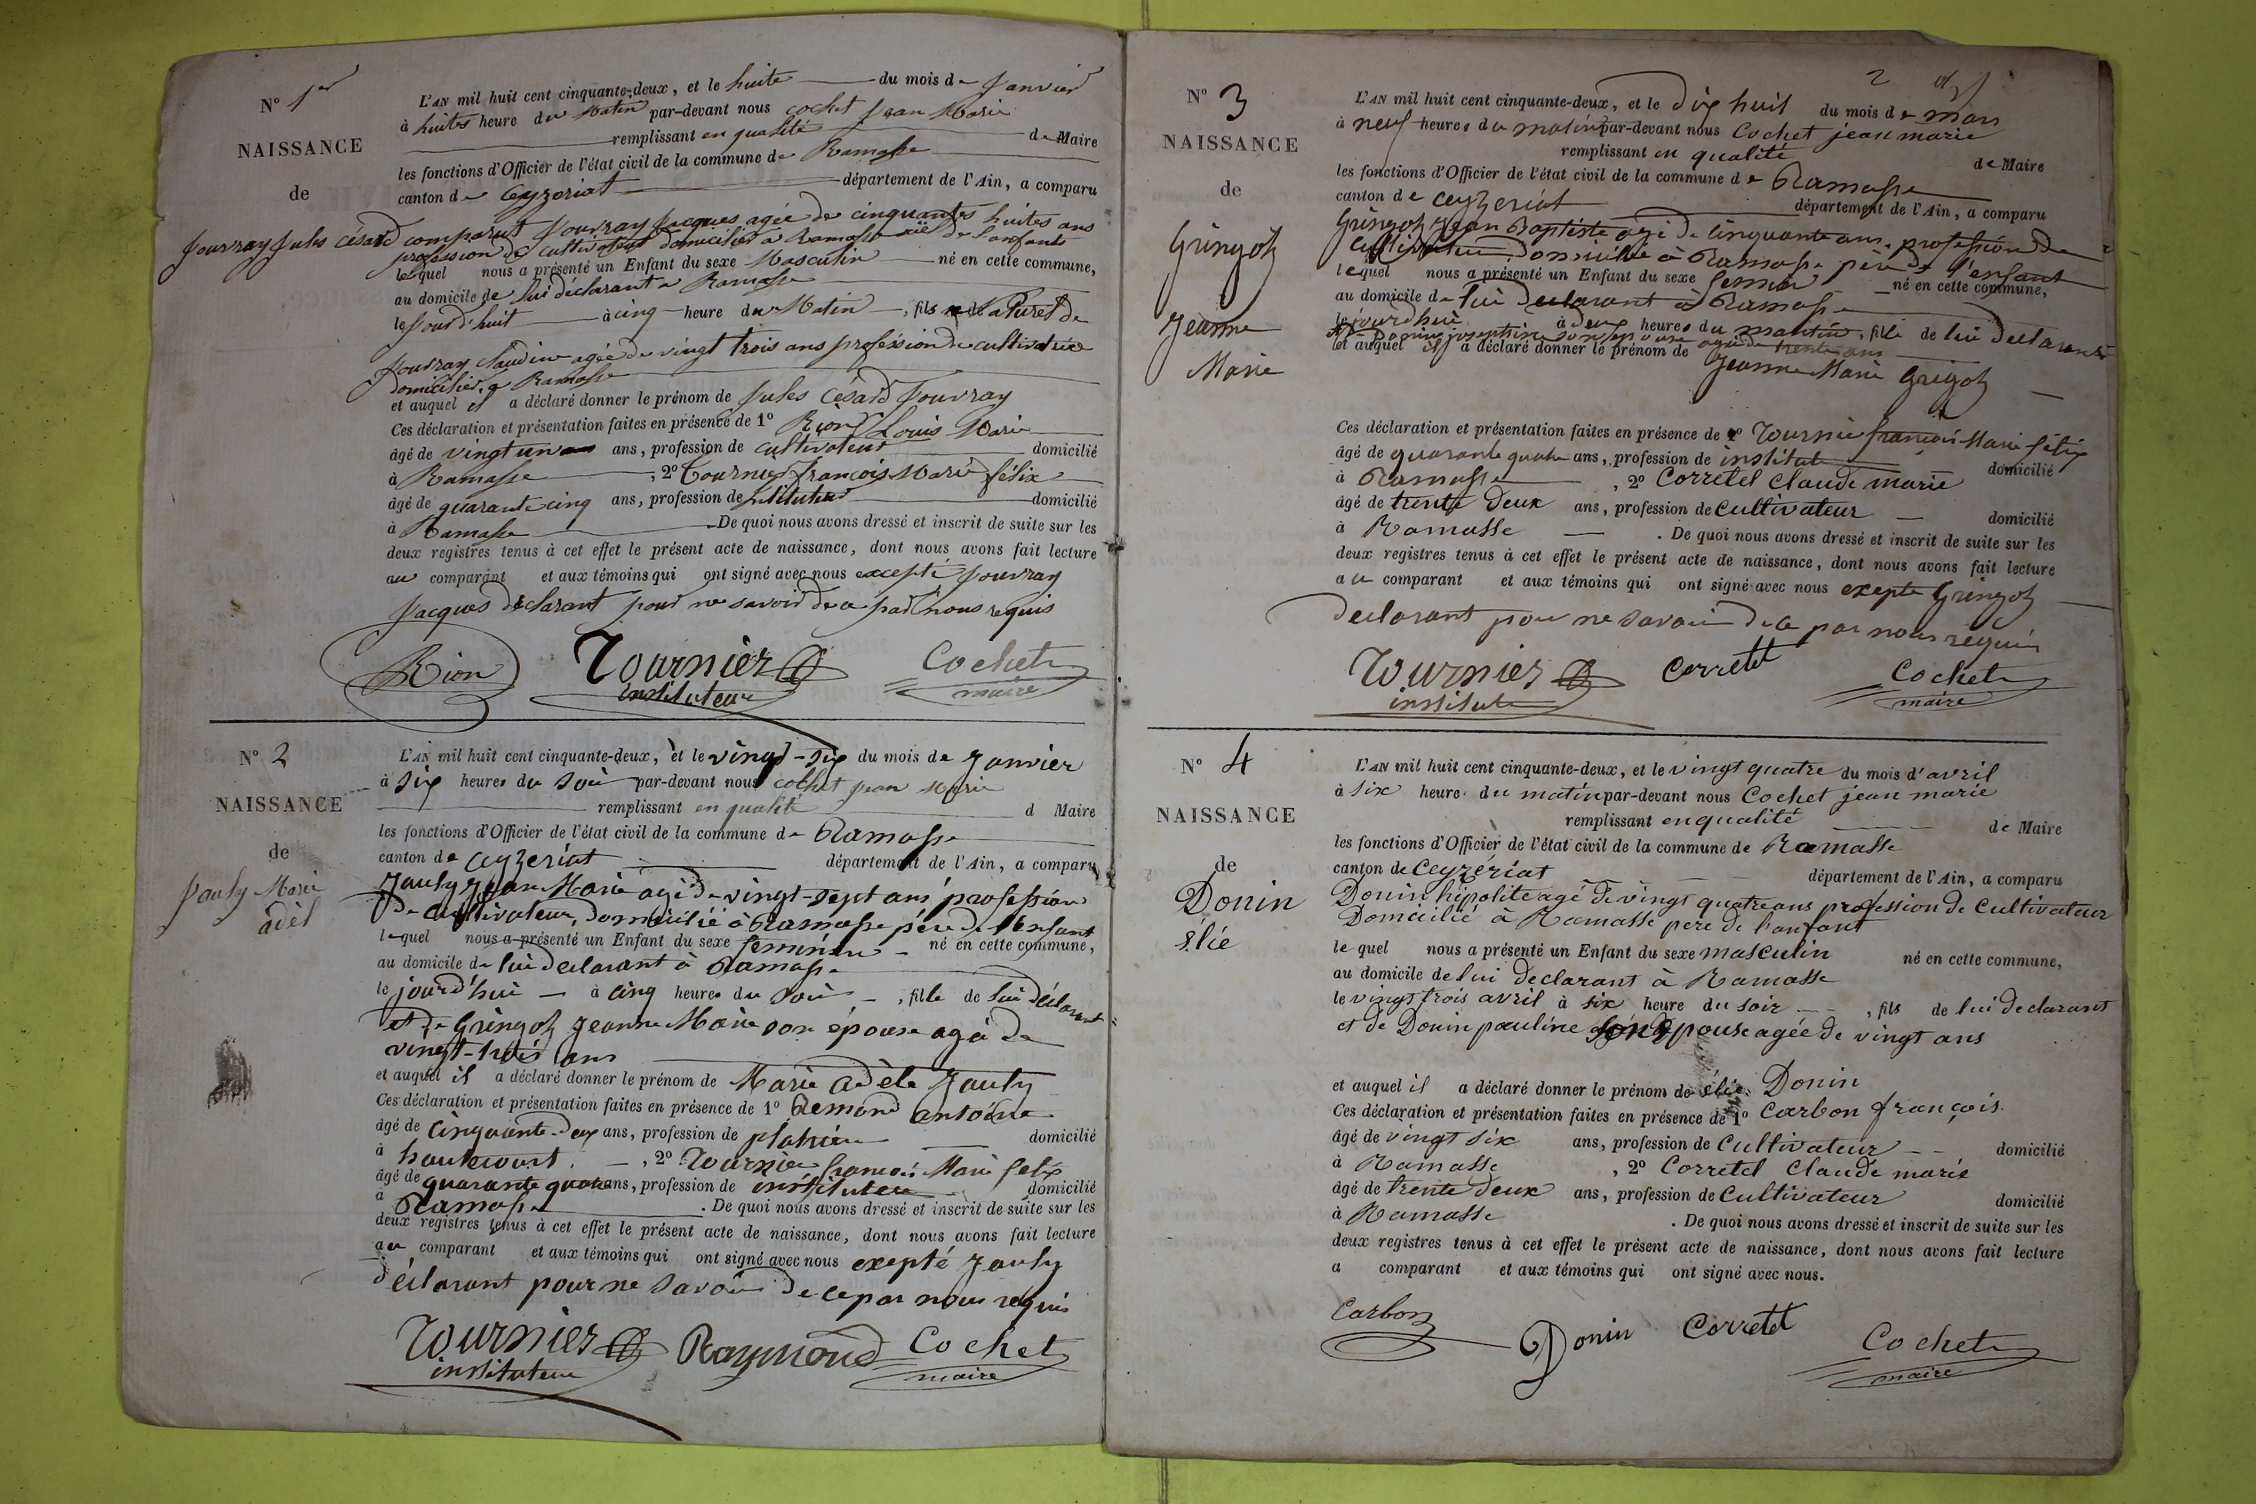 N° 1er
NAISSANCE
de
Jouvray Jules Césard
L'AN mil huit cent cinquante-deux, et le huite du mois de Janvier
à huites heure du Matin par-devant nous Cochet Jean Marie
remplissant en qualité de Maire
les fonctions d'Officier de l'état civil de la commune de Ramasse
canton de Ceyzeriat département de l'Ain, a comparu
comparut Jouvray Jacques agée de cinquantes huites ans
profession de cultivateur domicilier a Ramasse de l'enfants
lequel nous a présenté un Enfant du sexe Masculin né en cette commune,
au domicile de lui déclarant a Ramasse
le jourd'huit à cinq heure du Matin, fils Naturel de
Jouvray Claudine agée de vingt trois ans profession de cultivatrice
domicilier a Ramasse
et auquel il a déclaré donner le prénom de Jules Césard Jouvray
Ces déclaration et présentation faites en présence de 1° Rion Louis Marie
âgé de vingt un ans, profession de cultivateur domicilié
à Ramasse, 2° Tournier françois Marie félix
âgé de quarante cinq ans, profession de instituteur domicilié
à Ramasse. De quoi nous avons dressé et inscrit de suite sur les
deux registres tenus à cet effet le présent acte de naissance, dont nous avons fait lecture
au comparant et aux témoins qui ont signé avec nous excepté Jouvray
Jacques déclarant pour ne savoir de ce par nous requis
Rion Tournier Cochet
instituteur maire
N° 2
NAISSANCE
de
Jauly Marie
adèl
L'AN mil huit cent cinquante-deux, et le vingt-six du mois de Janvier
à six heures du soir par-devant nous Cochet Jean Marie
remplissant en qualité d Maire
les fonctions d'Officier de l'état civil de la commune de Ramasse
canton de Ceyzeriat département de l'Ain, a comparu
Jauly Jean Marie agé de vingt-sept ans profession
de cultivateur, domicilié à Ramasse père de l'enfant
lequel nous a présenté un Enfant du sexe feminin né en cette commune,
au domicile de lui declarant à Ramasse
le jourd'hui à cinq heures du soir, fille de lui déclarant
et de Gringoz Jeanne Marie son épouse agé de
vingt-trois ans
et auquel il a déclaré donner le prénom de Marie adèle Jauly
Ces déclaration et présentation faites en présence de 1° Remond antoine
âgé de cinquante-deux ans, profession de platrier domicilié
à hautecourt, 2° Tournier françois Marie felix
âgé de quarante quatre ans, profession de instituteur domicilié
à Ramasse. De quoi nous avons dressé et inscrit de suite sur les
deux registres tenus à cet effet le présent acte de naissance, dont nous avons fait lecture
au comparant et aux témoins qui ont signé avec nous exepté Jauly
déclarant pour ne savoir de ce par nous requis
Tournier Raymond Cochet
instituteur maire
2
N° 3
NAISSANCE
de
Gringoz
Jeanne
Marie
L'AN mil huit cent cinquante-deux, et le dix huit du mois de mars
à neuf heures du matin par-devant nous Cochet jean marie
remplissant en qualité de Maire
les fonctions d'Officier de l'état civil de la commune de Ramasse
canton de Ceyzeriat département de l'Ain, a comparu
Gringoz Jean Baptiste agé de cinquante ans, profession de
cultivateur domicilié à Ramasse père de l'enfant
lequel nous a présenté un Enfant du sexe feminin né en cette commune,
au domicile de lui declarant à Ramasse
le jourd'hui à deux heures du matin, fille de lui declarant
et Donin josephine son épouse agé de trente ans
et auquel il a déclaré donner le prénom de Jeanne Marie Grigoz
Ces déclaration et présentation faites en présence de 1° Tournier françois Marie félix
âgé de quarante quatre ans, profession de institut domicilié
à Ramasse, 2° Corretel Claude marie
âgé de trente deux ans, profession de Cultivateur domicilié
à Ramasse. De quoi nous avons dressé et inscrit de suite sur les
deux registres tenus à cet effet le présent acte de naissance, dont nous avons fait lecture
au comparant et aux témoins qui ont signé avec nous exepté Gringoz
declarant pour ne savoir de ce par nous requis
Tournier Corretel Cochet
institut maire
N° 4
NAISSANCE
de
Donin
élie
L'AN mil huit cent cinquante-deux, et le vingt quatre du mois d'avril
à six heure du matin par-devant nous Cochet jean marie
remplissant en qualité de Maire
les fonctions d'Officier de l'état civil de la commune de Ramasse
canton de Ceyzériat département de l'Ain, a comparu
Donin hipolite agé de vingt quatre ans profession de Cultivateur
Domicilié à Ramasse pere de l'enfant
le quel nous a présenté un Enfant du sexe masculin né en cette commune,
au domicile de lui declarant à Ramasse
le vingt trois avril à six heure du soir, fils de lui declarant
et de Donin pauline son épouse agée de vingt ans
et auquel il a déclaré donner le prénom de élie Donin
Ces déclaration et présentation faites en présence de 1° Carbon françois
âgé de vingt six ans, profession de Cultivateur domicilié
à Ramasse, 2° Corretel Claude marie
âgé de trente deux ans, profession de Cultivateur domicilié
à Ramasse. De quoi nous avons dressé et inscrit de suite sur les
deux registres tenus à cet effet le présent acte de naissance, dont nous avons fait lecture
a comparant et aux témoins qui ont signé avec nous.
Carbon Donin Corretel Cochet
maire